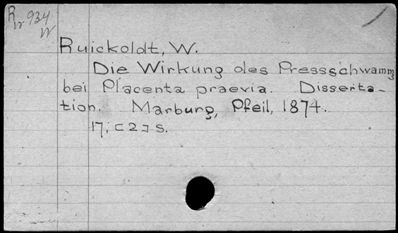 R
W 934
W
Ruickoldt, W.
Die Wirkung des Pressschwamm
bei Placenta praevia. Disserta-
tion. Marburg, Pfeil, 1874.
17, [2] s.